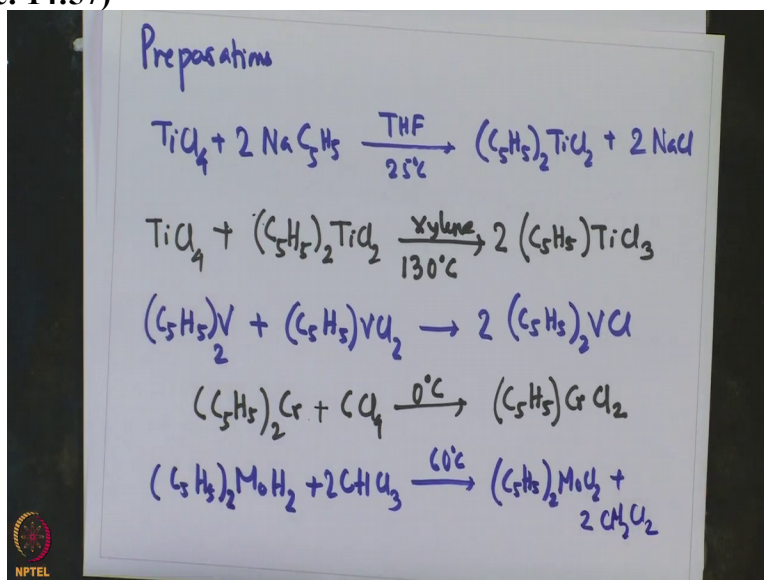 Preparations
TiCl₄ + 2 Na C₅H₅ THF 25°C → (C₅H₅)₂TiCl₂ + 2 NaCl
TiCl₄ + (C₅H₅)₂TiCl₂ xylene, 130°C → 2 (C₅H₅)TiCl₃
(C₅H₅)₂V + (C₅H₅)VCl₂ → 2 (C₅H₅)₂VCl
(C₅H₅)₂Cr + CCl₄ 0°C → (C₅H₅)CrCl₂
(C₅H₅)₂MoH₂ + 2CHCl₃ 60°C → (C₅H₅)₂MoCl₂ +
2 CH₂Cl₂
NPTEL